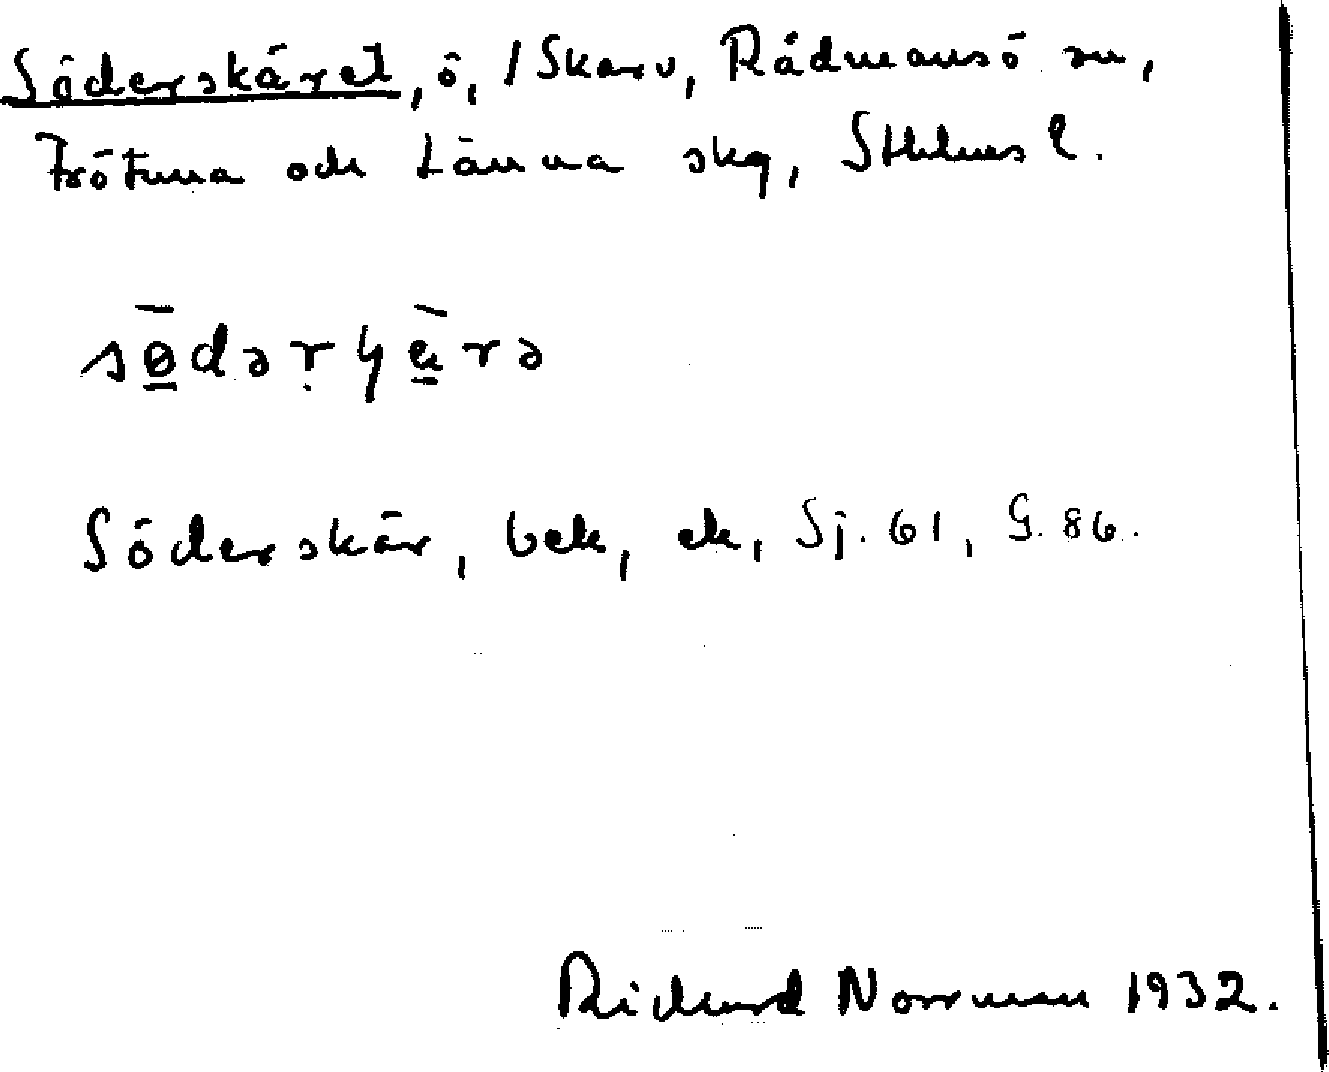 Söderskäret, ö, / Skarv, Rådmansö sn,
Frötuna och Länna skg, Sthlms l.
sødərɧärə
Söderskär, bek, ek, Sj. 61, G. 86.
Richard Norrman 1932.